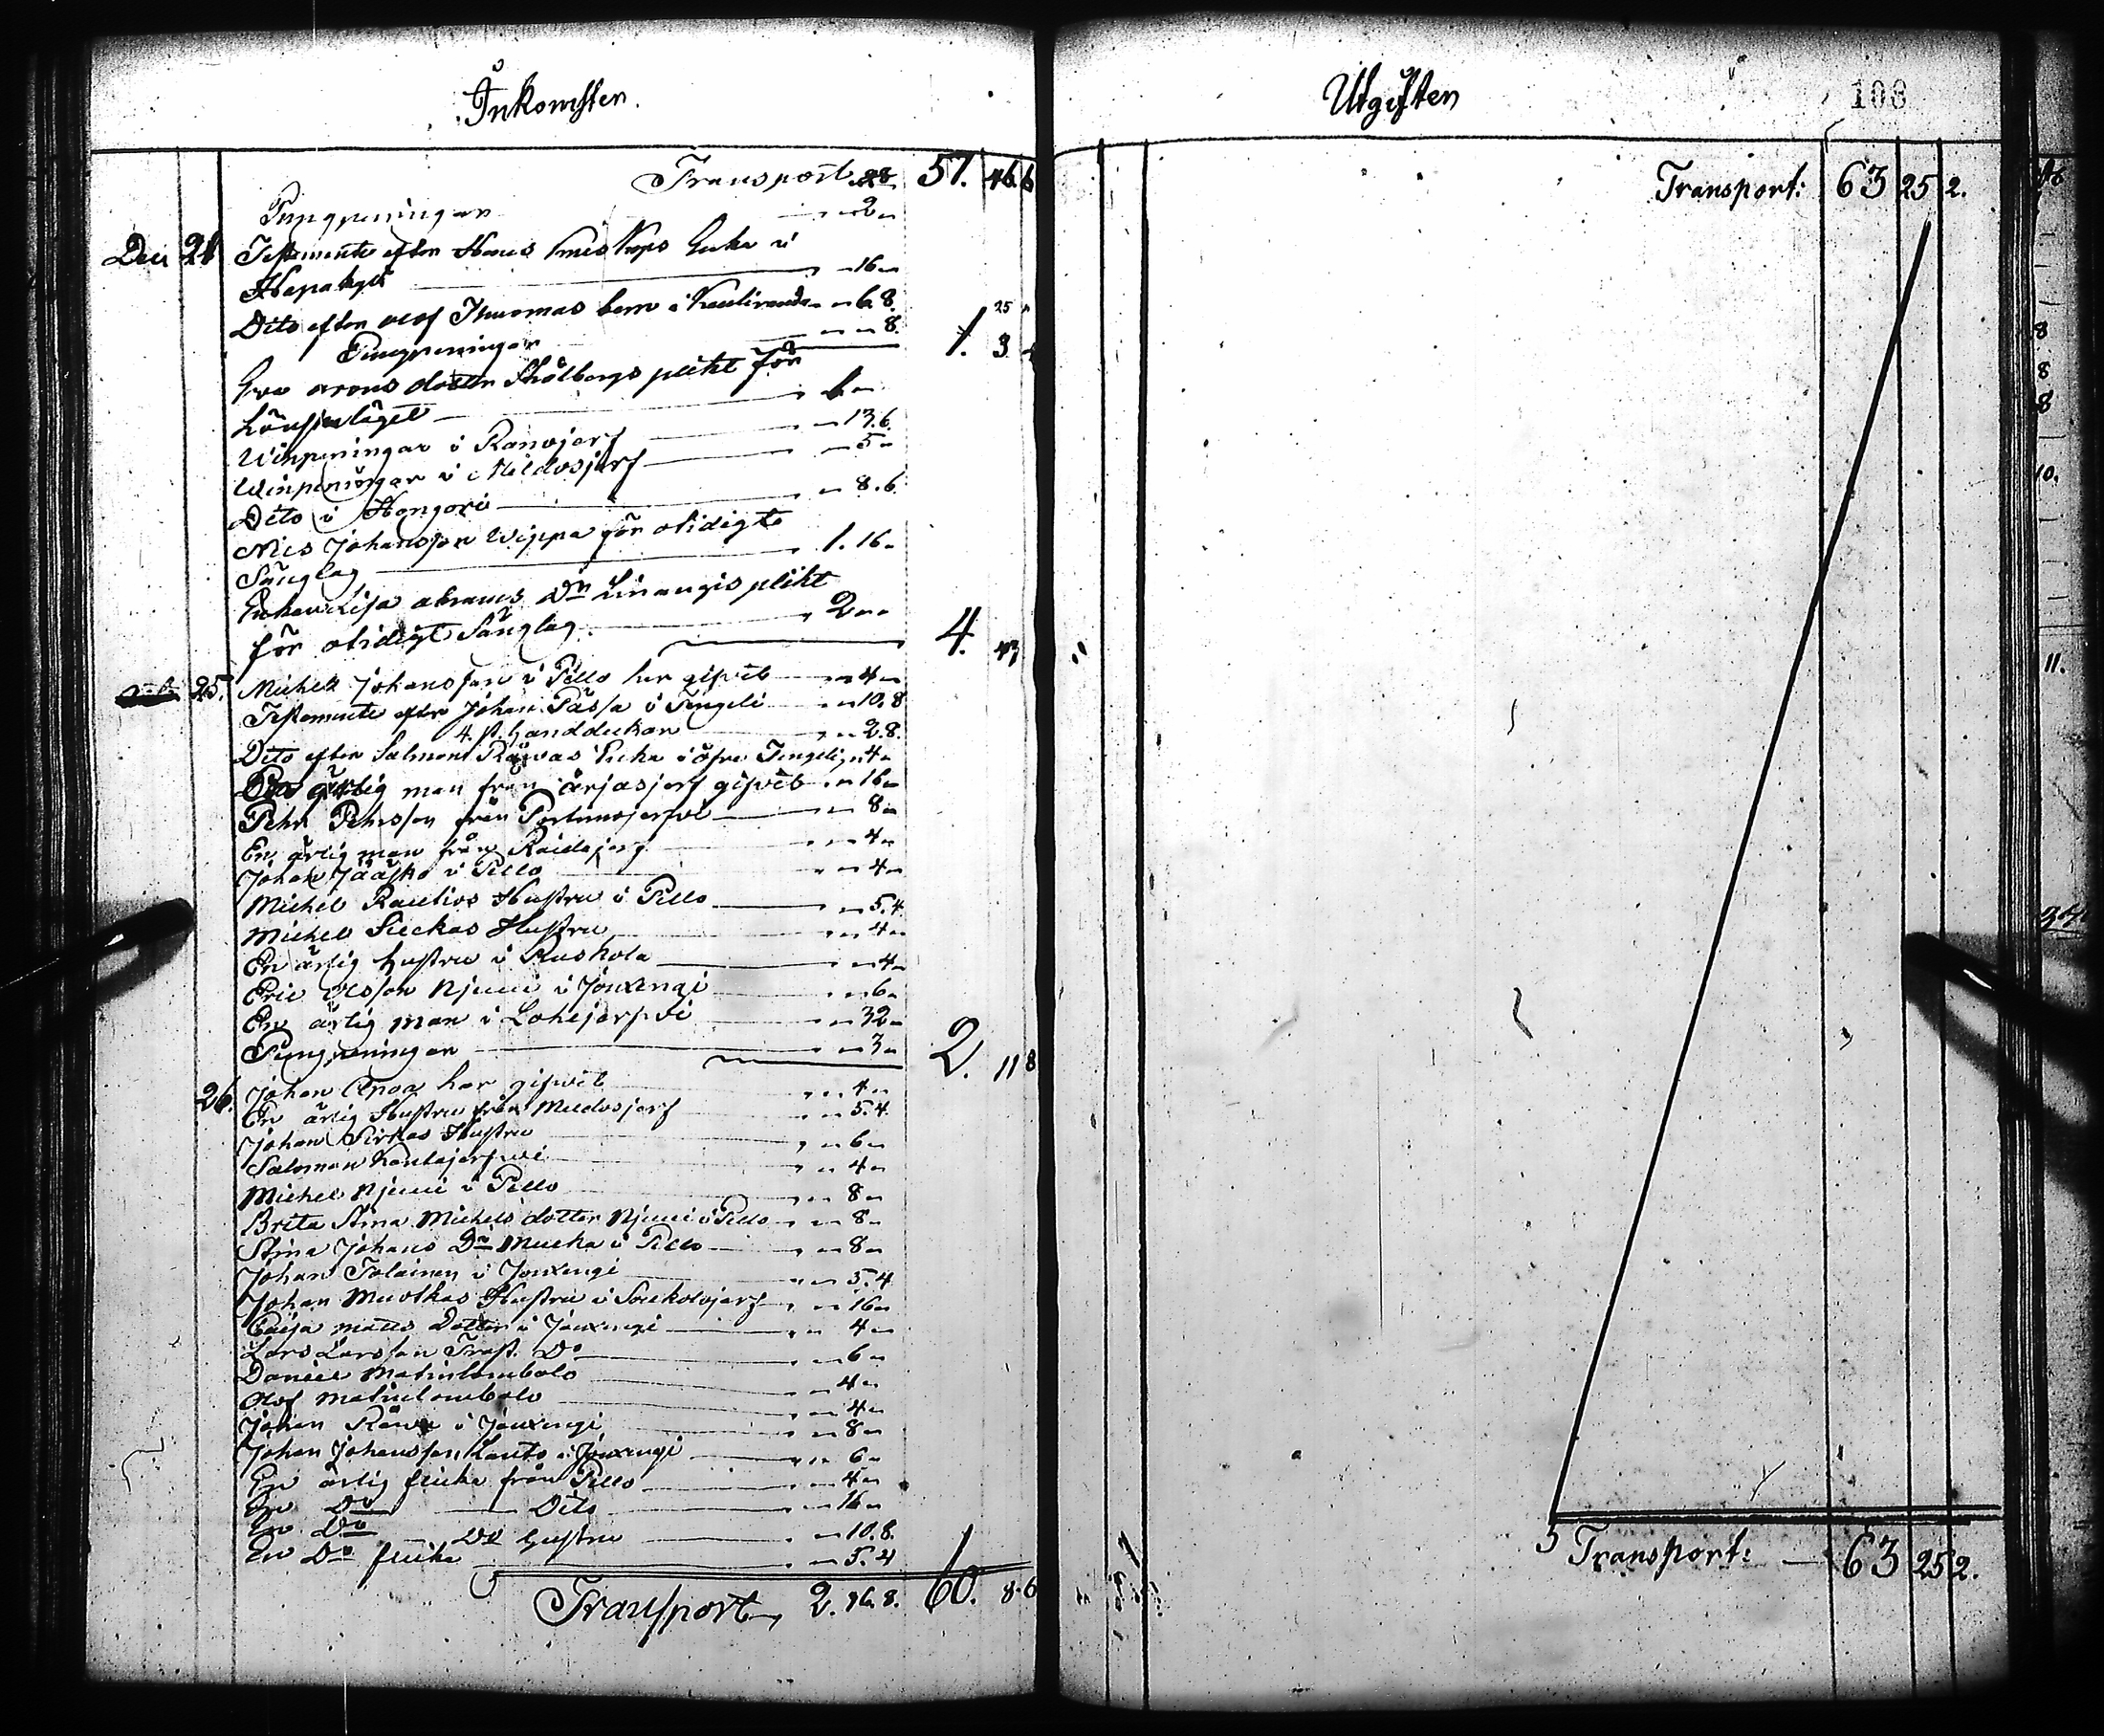 Inkomsten.
Transport 28. 57. 46. 6
Pungpeningar 2
Dec 21 Testamente efter Hans Enka i
16
Dito efter olof Thuomas barn i 6.8. 25
Pungpeningar 8. 1. 3
Eva arons dotter Sholbergs plikt för
Lönskaläget 6
Winpeningar i Ranojerf 13.6.
Winpeningar i Mildosjerf 5
Dito i Kongori 8.6.
Nils Johansson Wippa för otidigt
Sänglag 1. 16
Enkan Lisa abrams Dr plikt
för otidigt Sänglag 2 4. 43
25. Michel Johansson i Pello har gifvit 4
Testamente efter Johan Passa i Tengeli 10.8
4. st. handdukar 2.8.
Dito efter Salmon Räwas Enka i öfre Tengeli 4
ärlig man från ärjasjerf gifvit 16
Pehr Pehrsson från Portimojerfvi 8
En ärlig man från Raidajerf 4
Johan Jääsko i Pello 4
Michel Rautios Hustru i Pello 5.4.
Michel Sieckas Hustru 4
En ärlig hustru i Ruskola 4
Eric Olsson Njemi i Jouxengi 6
En ärlig man i Lohijerfvi 32
Pungpeningar 3 2. 11 8
26. Johan har gifvit 4
En ärlig Hustru från Meedosjerf 5.4.
Johan Sirkas Hustru 6
Salomon Kantajerfvi 4
Michel Njemi i Pello 8
Brita Stina Michels dotter Njemi i Pello 8
Stina Johans Dr Mucka i Pello 8
Johan Tolainen i Jouxengi 5.4
Johan Muotkas Hustru i Soukolojerf 16
Caisa matts Dotter i Jouxengi 4
Lars Larsson Trast Do 6
Daniel Matinlombolo 4
Olof Matinlombolo 4
Johan Räwa i Jouxengi 8
Johan Johansson Lauto i Jouxengi 6
En ärlig flicka från Pello 4
En Do Dito 16
En Do Do hustru 10.8.
En Do flicka 5.4
Transport 2. 16. 8. 60. 8.6
Utgiften
100
Transport: 63 25 2.
Transport: 63 25 2.